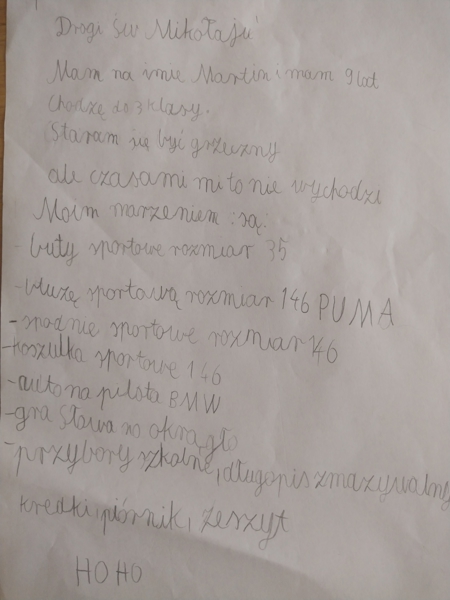 Drogi św Mikołaju
Mam na imie Martin i mam 9 lat
Chodzę do 3 klasy.
Staram się być grzeczny
ale czasami mi to nie wychodzi
Moim marzeniem są:
- buty sportowe rozmiar 35
- bluzę sportową rozmiar 146 PUMA
- spodnie sportowe rozmiar 146
- koszulka sportowe 146
- auto na pilota BMW
- gra Słowa na okrągło
- przybory szkolne, długopis zmazywalny
kredki, piórnik, zeszyt
HO HO